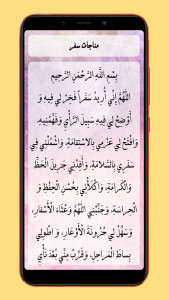 مناجات سفر
بِسْمِ اللَّهِ الرَّحْمَنِ الرَّحِيمِ
اللَّهُمَّ إِنِّي أُرِيدُ سَفَراً فَخِرْ لِي فِيهِ وَ
أَوْضِحْ لِي فِيهِ سَبِيلَ الرَّأْيِ وَ فَهِّمْنِيهِ
وَ افْتَحْ لِي عَزْمِي بِالاسْتِقَامَةِ، وَ اشْمُلْنِي فِي
سَفَرِي بِالسَّلامَةِ، وَ أَفِدْنِي جَزِيلَ الْحَظِّ
وَ الْكَرَامَةِ، وَ اكْلَأْنِي بِحُسْنِ الْحِفْظِ وَ
الْحِرَاسَةِ، وَ جَنِّبْنِي اللَّهُمَّ وَعْثَاءَ الْأَسْفَارِ،
وَ سَهِّلْ لِي حُزُونَةَ الْأَوْعَارِ، وَ اطْوِ لِي
بِسَاطَ الْمَرَاحِلِ، وَ قَرِّبْ مِنِّي بُعْدَ نَأْيِ